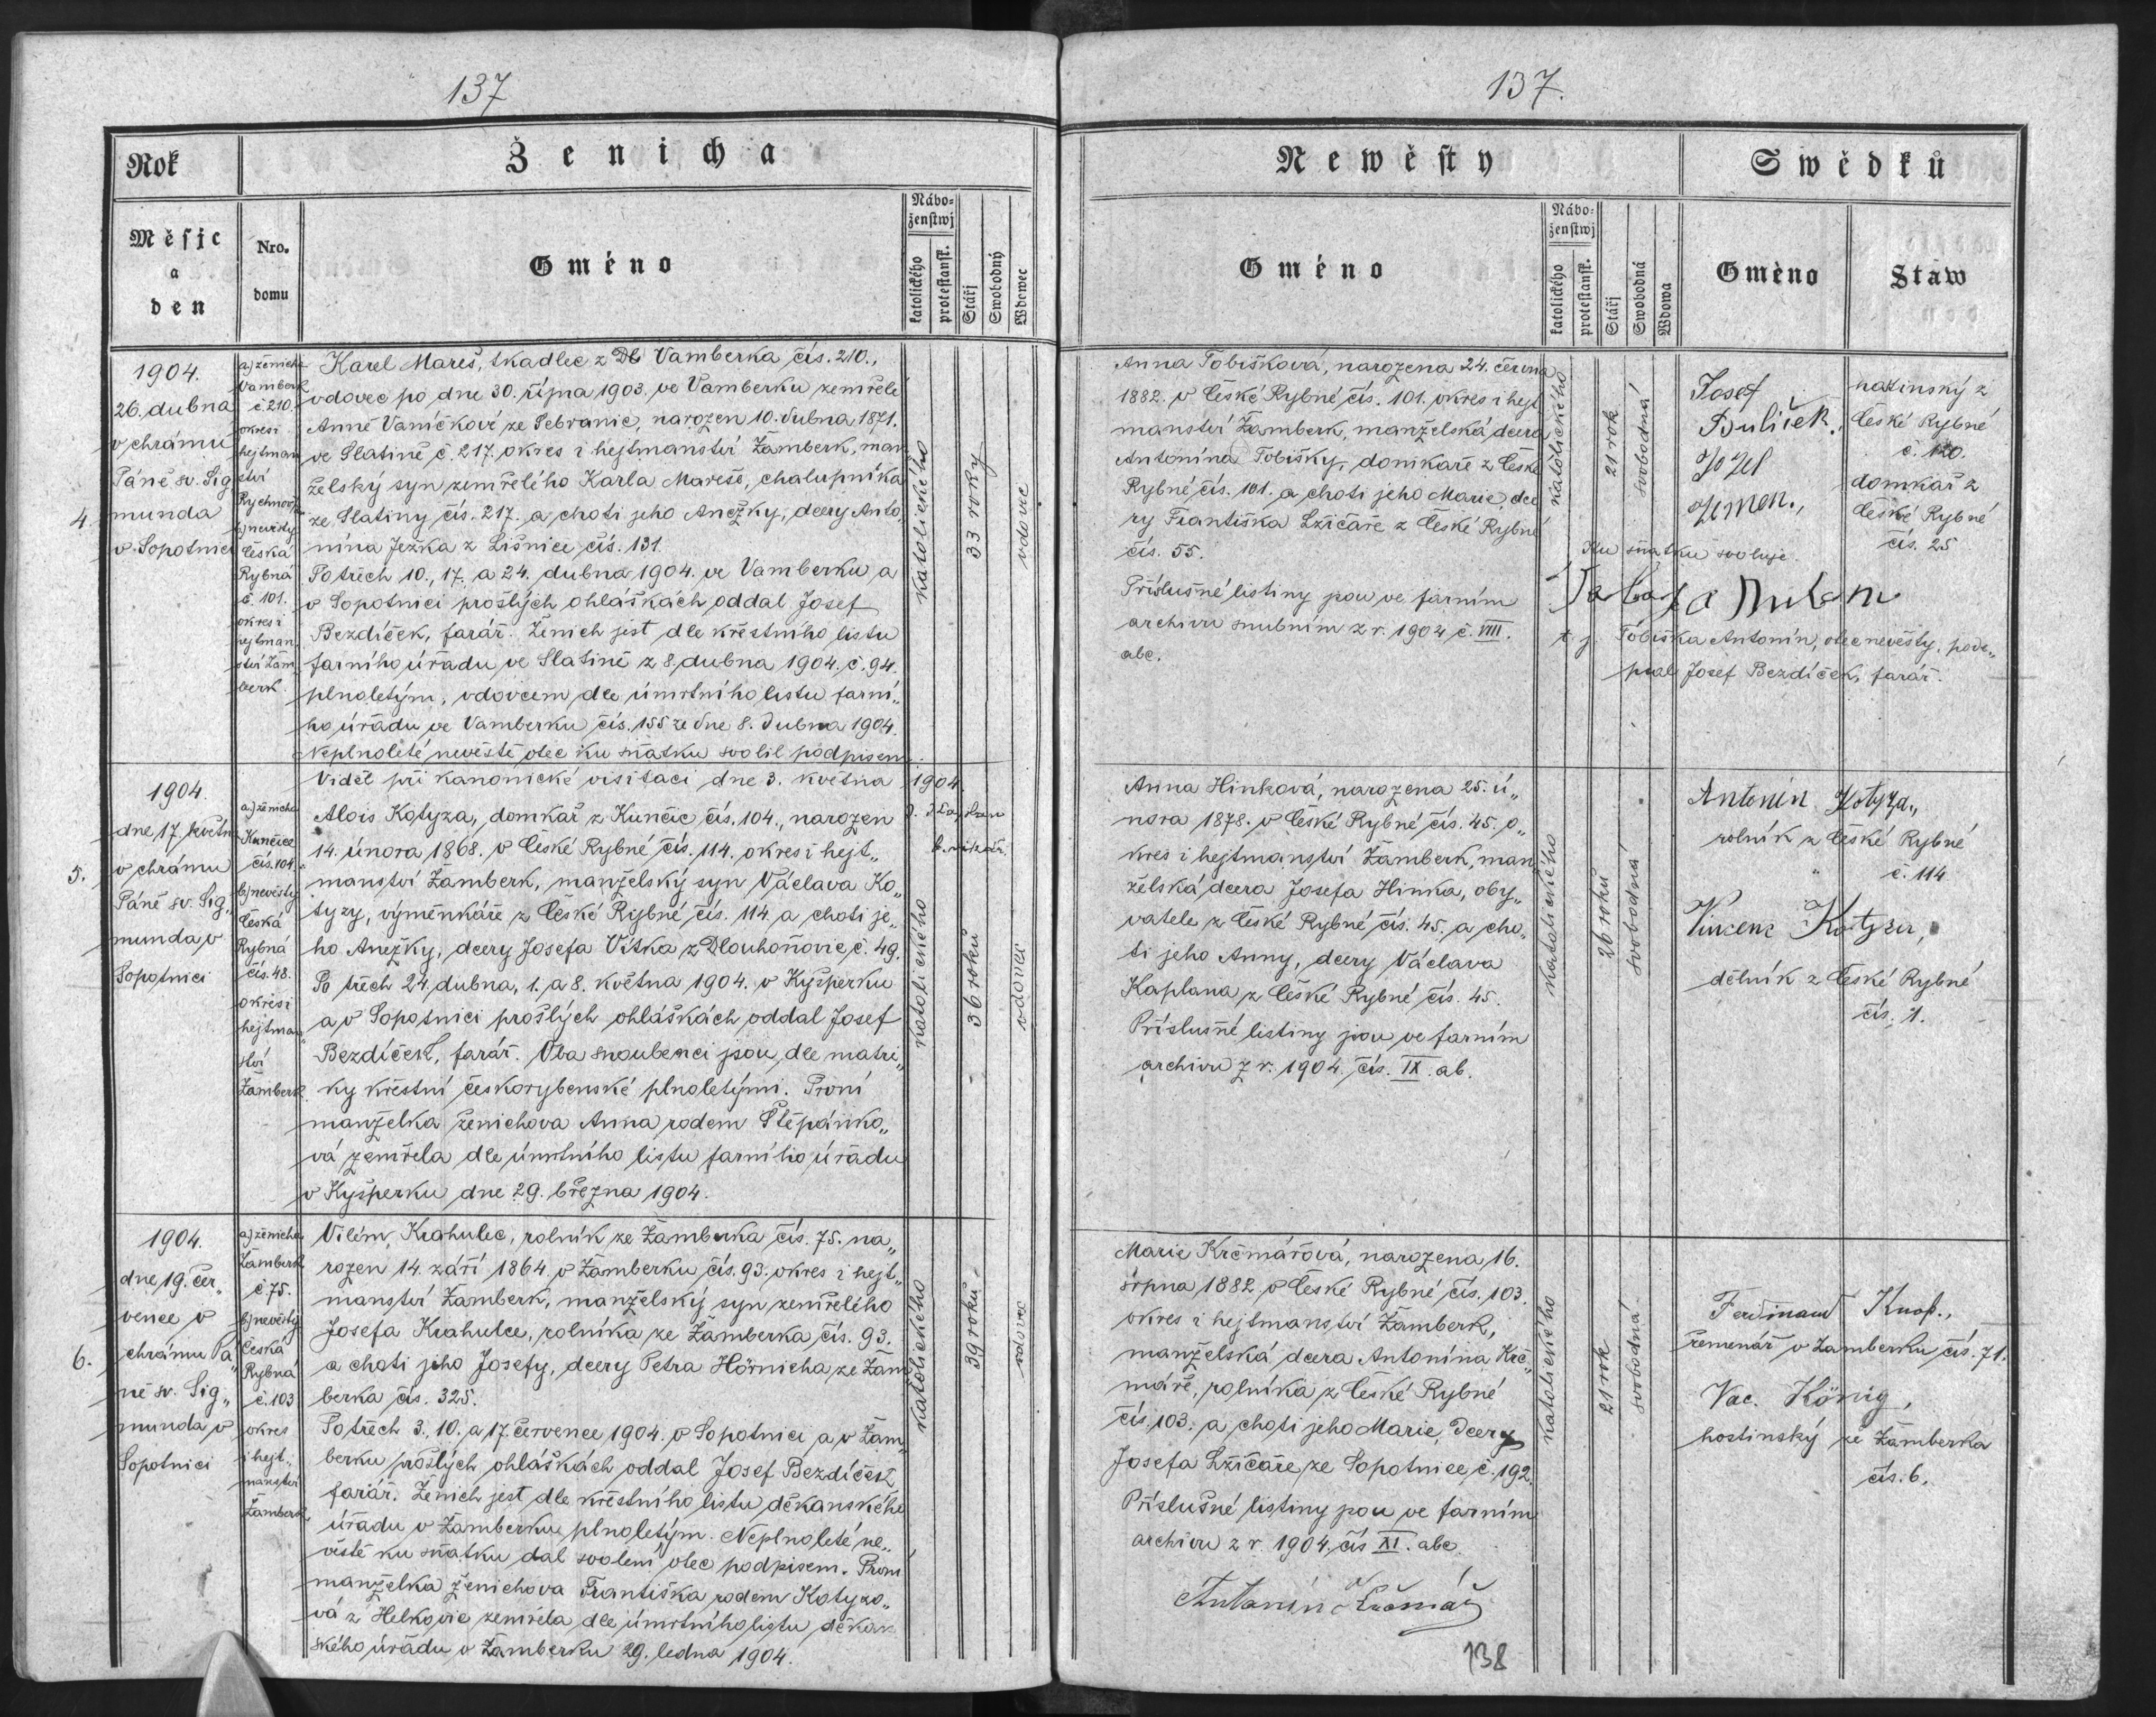 137
Rok
Ženicha
Měsjc
a
den
Nro.
domu
Gméno
Nábo=
ženstwj
katolického
protestansk.
Stářj
Swobodný
Wdowec
1904.
26. dubna
v chrámu
Páně sv. Sig„
munda
v Sopotnici
4.
a) ženicha
Vamberk
č. 210.
okres i
hejtman
ství
Rychnov
b) nevěsty
Česká
Rybná
č. 101.
okres i
hejtman„
ství Žam„
berk.
Karel Mareš, tkadlec z Vamberka čís. 210.,
vdovec po dne 30. října 1903. ve Vamberku zemřelé
Anně Vaníčkové ze Pebranic, narozen 10. dubna 1871.
ve Slatině č. 217. okres i hejtmanství Žamberk, man„
želský syn zemřelého Karla Mareše, chalupníka
ze Slatiny čís. 217. a choti jeho Anežky, dcery Anto„
nína Ježka z Lišnice čís. 131.
Po třech 10., 17. a 24. dubna 1904. ve Vamberku a
v Sopotnici prošlých ohláškách oddal Josef
Bezdíček, farář. Ženich jest dle křestního listu
farního úřadu ve Slatině z 8. dubna 1904. č. 94.
plnoletým, vdovcem dle úmrtního listu farní„
ho úřadu ve Vamberku čís. 155 ze dne 8. dubna 1904.
Neplnoleté nevěstě otec ku sňatku svolil podpisem.
katolického
33 roky
vdovec
Viděl při kanonické visitaci dne 3. května 1904.
b. vikář.
1904.
dne 17. květn
v chrámu
Páně sv. Sig„
munda v
Sopotnici
5.
a) ženicha
Kunčice
čís. 104.
b) nevěsty
Česká
Rybná
čís. 48.
okres i
hejtman„
ství
Žamberk.
Alois Kotyza, domkář z Kunčic čís. 104., narozen
14. února 1868. v České Rybné čís. 114. okres i hejt„
manství Žamberk, manželský syn Václava Ko„
tyzy, výměnkáře z České Rybné čís. 114. a choti je„
ho Anežky, dcery Josefa Vítka z Dlouhoňovic č. 49.
Po třech 24. dubna, 1. a 8. května 1904. v Kyšperku
a v Sopotnici prošlých ohláškách oddal Josef
Bezdíček, farář. Oba snoubenci jsou, dle matri„
ky křestní českorybenské plnoletými. První
manželka ženichova Anna rodem Štěpánko„
vá zemřela dle úmrtního listu farního úřadu
v Kyšperku dne 29. března 1904.
katolického
36 roků
vdovec
1904.
dne 19. čer„
vence v
chrámu Pá„
ně sv. Sig„
munda v
Sopotnici
6.
a) ženicha
Žamberk
č. 75.
b) nevěsty
Česká
Rybná
č. 103
okres
i hejt„
manství
Žamberk.
Vilém Krahulec, rolník ze Žamberka čís. 75. na„
rozen 14. září 1864. v Žamberku čís. 93. okres i hejt„
manství Žamberk, manželský syn zemřelého
Josefa Krahulce, rolníka ze Žamberka čís. 93.
a choti jeho Josefy, dcery Petra Hörnicha ze Žam
berka čís. 325.
Po třech 3., 10. a 17. července 1904. v Sopotnici a v Žam„
berku prošlých ohláškách oddal Josef Bezdíček
farář. Ženich jest dle křestního listu děkanského
úřadu v Žamberku plnoletým. Neplnoleté ne„
věstě ku sňatku dal svolení otec podpisem. První
manželka ženichova Františka rodem Kotyzo„
vá z Helkovic zemřela dle úmrtního listu děkan
ského úřadu v Žamberku 29. ledna 1904.
katolického
39 roků
vdovec
137.
Newěsty
Swědků
Gméno
Nábo=
ženstwj
katolického
protestansk.
Stářj
Swobodná
Wdowa
Gméno
Staw
Anna Tobišková, narozena 24. června
1882. v České Rybné čís. 101. okres i hejt
manství Žamberk, manželská dcera
Antonína Tobišky, domkáře z České
Rybné čís. 101. a choti jeho Marie, dce
ry Františka Lžičaře z České Rybné
čís. 55.
Příslušné listiny jsou ve farním
archivu snubním z r. 1904 č. VIII.
abc.
katolického
21 rok
svobodná
Josef
Buliček.
Jozef
Jemen.,
České Rybné
č. 120.
domkář z
České Rybné
čís. 25
Ku sňatku svoluje.
t. j. Tobiška Antonín, otec nevěsty, pode„
psal Josef Bezdíček, farář.
Anna Hinková, narozena 25. ú„
nora 1878. v České Rybné čís. 45. o„
kres i hejtmanství Žamberk, man
želská dcera Josefa Hinka, oby„
vatele z České Rybné čís. 45. a cho„
ti jeho Anny, dcery Václava
Kaplana z České Rybné čís. 45.
Příslušné listiny jsou ve farním
archivu z r. 1904. čís. IX. ab.
katolického
26 roků
svobodná
Antonín Kotyza,,
rolník z České Rybné
č. 114
Vincenc Kotyza,
dělník z České Rybné
čís. 1.
Marie Krčmářová, narozena 16.
srpna 1882 v České Rybné čís. 103.
okres i hejtmanství Žamberk,
manželská dcera Antonína Krč„
máře, rolníka z České Rybné
čís. 103. a choti jeho Marie, dcery
Josefa Lžičaře ze Sopotnice č. 192.
Příslušné listiny jsou ve farním
archivu z r. 1904. čís XI. abc.
Antonín Krčmář
katolického
21 rok
svobodná
Ferdinand Knop.,
řemenář v Žamberku čís. 71.
Vac. König,
hostinský ze Žamberka
čís. 6.
138